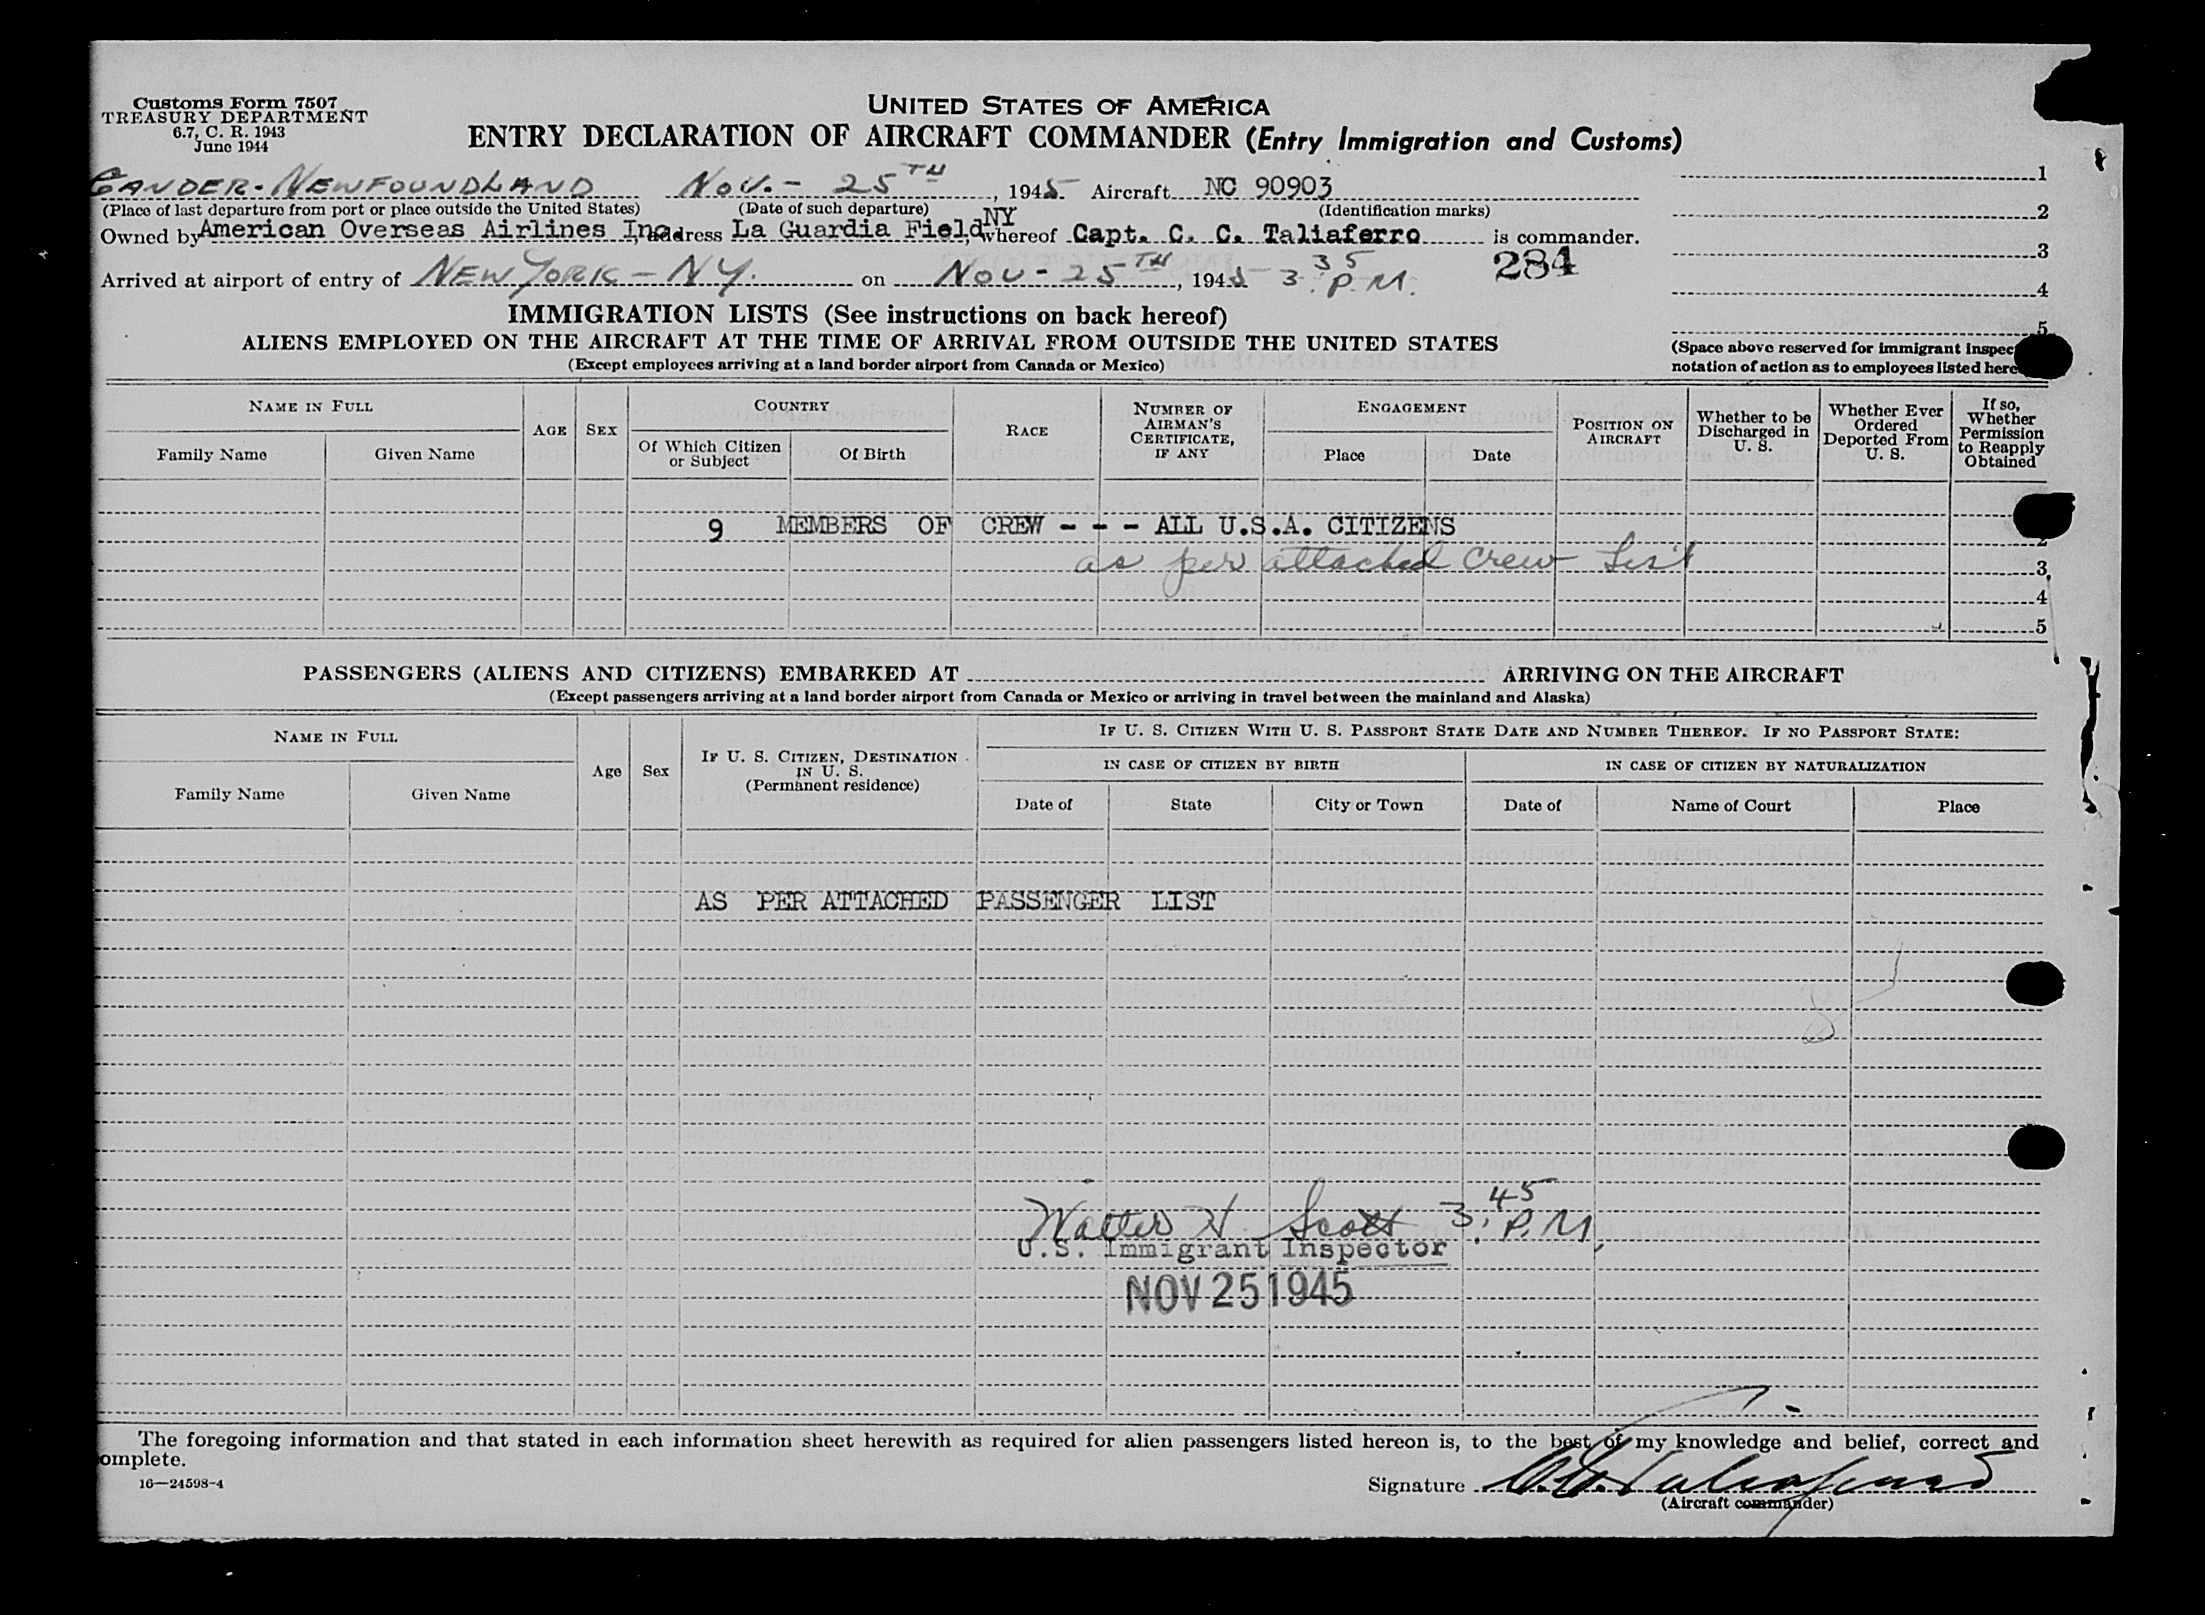 Customs Form 7507
TREASURY DEPARTMENT
6.7, C. R. 1943
June 1944
UNITED STATES OF AMERICA
ENTRY DECLARATION OF AIRCRAFT COMMANDER (Entry Immigration and Customs)
GANDER - NEWFOUNDLAND NOV. - 25TH, 1945 Aircraft NC 90903
(Place of last departure from port or place outside the United States) (Date of such departure) (Identification marks)
Owned by American Overseas Airlines Inc., address La Guardia Field, NY whereof Capt. C. C. Taliaferro is commander.
Arrived at airport of entry of NEW YORK - NY. on NOV - 25TH, 1945 3:35 P.M. 284
1
2
3
4
5
(Space above reserved for immigrant inspec
notation of action as to employees listed here
IMMIGRATION LISTS (See instructions on back hereof)
ALIENS EMPLOYED ON THE AIRCRAFT AT THE TIME OF ARRIVAL FROM OUTSIDE THE UNITED STATES
(Except employees arriving at a land border airport from Canada or Mexico)
NAME IN FULL
Family Name
Given Name
AGE
SEX
COUNTRY
Of Which Citizen or Subject
Of Birth
RACE
NUMBER OF AIRMAN'S CERTIFICATE, IF ANY
ENGAGEMENT
Place
Date
POSITION ON AIRCRAFT
Whether to be Discharged in U. S.
Whether Ever Ordered Deported From U. S.
If so, Whether Permission to Reapply Obtained
9 MEMBERS OF CREW - - - ALL U.S.A. CITIZENS
2
as per attached crew list
3
4
5
PASSENGERS (ALIENS AND CITIZENS) EMBARKED AT ARRIVING ON THE AIRCRAFT
(Except passengers arriving at a land border airport from Canada or Mexico or arriving in travel between the mainland and Alaska)
NAME IN FULL
Family Name
Given Name
Age
Sex
IF U. S. CITIZEN, DESTINATION IN U. S.
(Permanent residence)
IF U. S. CITIZEN WITH U. S. PASSPORT STATE DATE AND NUMBER THEREOF. IF NO PASSPORT STATE:
IN CASE OF CITIZEN BY BIRTH
Date of
State
City or Town
IN CASE OF CITIZEN BY NATURALIZATION
Date of
Name of Court
Place
AS PER ATTACHED PASSENGER LIST
Walter H. Scott 3:45 P.M.
U.S. Immigrant Inspector
NOV 25 1945
The foregoing information and that stated in each information sheet herewith as required for alien passengers listed hereon is, to the best of my knowledge and belief, correct and
omplete.
16—24598-4
Signature C. C. Taliaferro
(Aircraft commander)